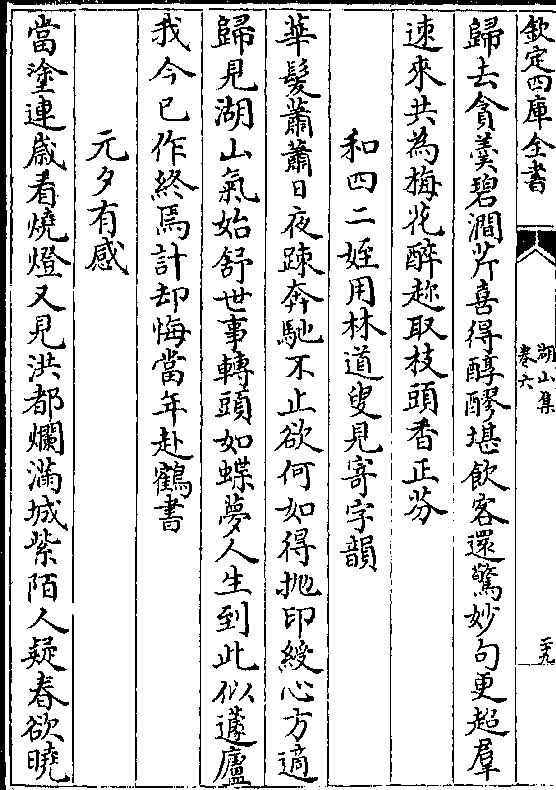 欽定四庫全書
湖山集
卷六
二十九
歸去貪羮碧澗芹喜得醇醪堪飲客還驚妙句更超羣
速來共為梅花醉趂取枝頭香正芬
和四二姪用林道叟見寄字韻
華髮蕭蕭日夜踈奔馳不止欲何如得抛印綬心方適
歸見湖山氣始舒世事轉頭如蝶夢人生到此似蘧廬
我今已作終焉計却悔當年赴鶴書
元夕有感
當塗連歲看燒燈又見洪都爛滿城紫陌人疑春欲曉